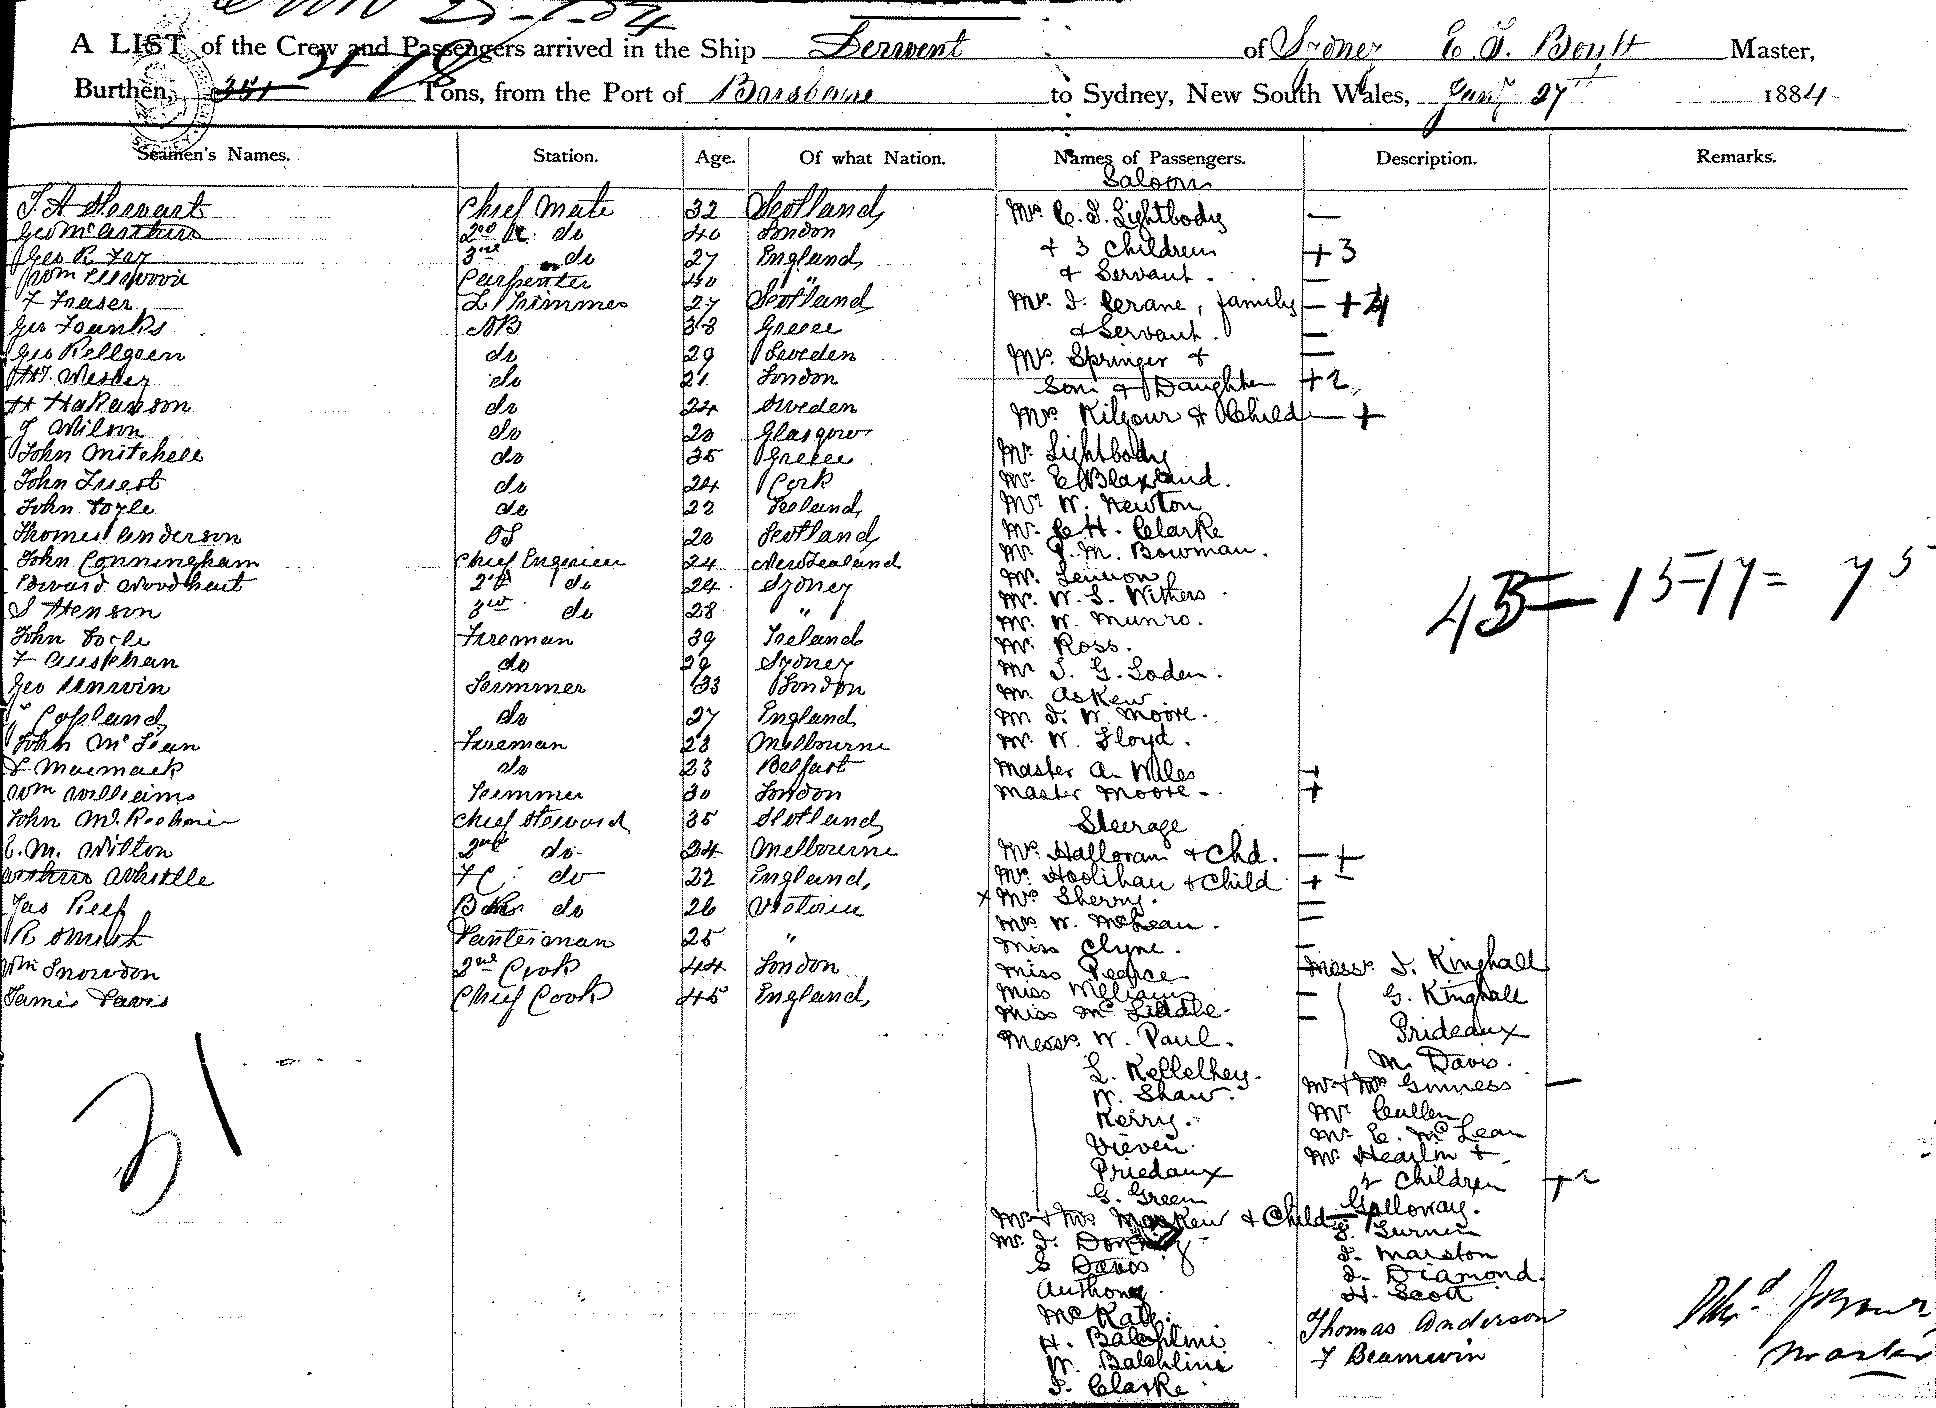 A LIST of the Crew and Passengers arrived in the Ship Derwent of Sydney E. T. Boult Master,
Burthen, 351 Tons, from the Port of Brisbane to Sydney, New South Wales, Jany 27th 1884
Seamen's Names. Station. Age. Of what Nation. Names of Passengers. Description. Remarks.
Saloon
Chief Mate 32 Scotland Mrs C. S. Lightbody —
Geo McArthur 2nd do 40 London
Geo R 3rd do 27 England + 3 Children + 3
Wm Ellwood Carpenter 40 " + Servant. —
F Fraser L Trimmer 27 Scotland Mrs J. Crane, family — + 4
Geo AB 38 Greece + Servant. —
Geo Kellgren do 29 Sweden Mrs Springer + —
do 21 London Son & Daughter + 2
H Hakanson do 24 Sweden Mrs Kilgour & Child — +
J Wilson do 20 Glasgow
John Mitchell do 35 Greece Mr Lightbody
John do 24 Cork Mr E Blaxland.
John Doyle do 22 Ireland Mr W. Newton
Thomas Anderson OS 20 Scotland Mr C. H. Clarke
John Conningham Chief Engenier 24 New Zealand Mr J. M. Bowman.
Edward Woodheart 2nd do 24 Sydney Mr. Lennon
S Henson 3rd do 28 " Mr. W. S. Withers.
John Doyle Fireman 39 Ireland Mr. W. Munro.
F do 29 Sydney Mr. Ross.
Geo Trimmer 33 London Mr J. G. Loden.
J Copland do 27 England Mr. Askew
John McLean Fireman 23 Melbourne Mr J. W. Moore.
do 23 Belfast Mr. W. Lloyd.
Wm Williams Trimmer 30 London Master A. Wiles +
Master Moore +
John Chief Steward 35 Scotland Steerage
E. M. Wilton 2nd do 24 Melbourne Mrs Halloran + Chd. — +
Arthur FC do 22 England Mrs Hoolihan + Child + —
Jas Reef do 26 Victoria x Mrs Sherry. —
R Smith Panteriman 25 " Mrs W. McLean. —
Miss Clyne. —
Wm Snowdon 2nd Cook 44 London Miss Pearce — Messrs J. Kinghall
James Davis Chief Cook 45 England Miss Williams — G. Kinghall
Miss McLiddle. — Prideaux
31
Messrs W. Paul. M. Davis.
L. Kellelhey. Mr + Mrs Guiness —
W. Shaw. Mr Cullen
Kerry. Mr E. McLean
Vieven Mr +
Priedaux 2 Children + 2
G. Green Galloway.
Mr + Mrs Maskew + Child — +
Mr J.
S Davis J. Marston
Anthony J. Diamond.
McKabe. H. Scott
H. Balchlini Thomas Anderson
W. Balchline F
J. Clarke.
45 — 15 — 17 = 75
Master